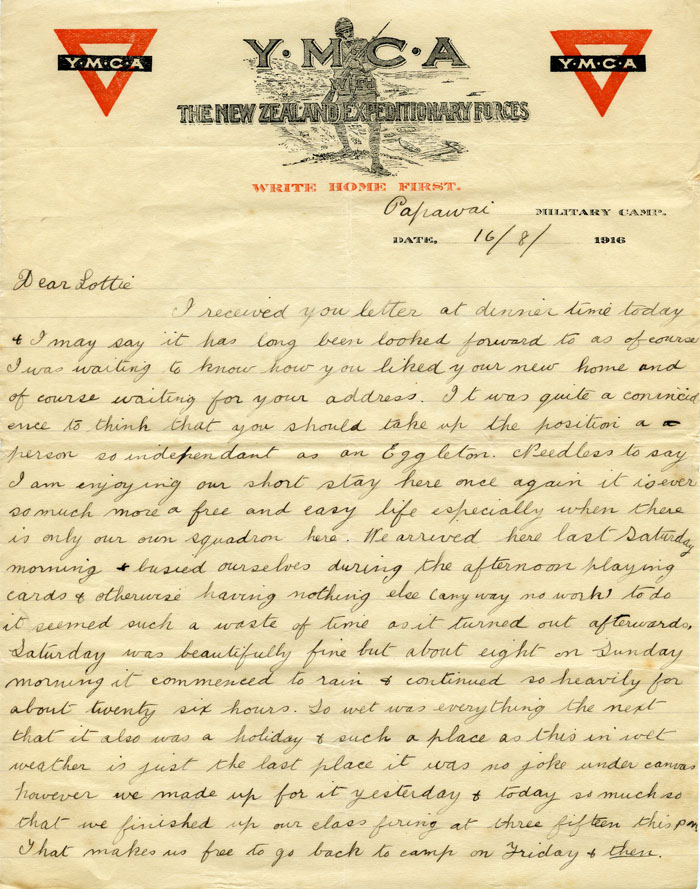 Y·M·C·A
Y·M·C·A
Y·M·C·A
With
THE NEW ZEALAND EXPEDITIONARY FORCES
WRITE HOME FIRST.
Papawai MILITARY CAMP.
DATE, 16/8/ 1916
Dear Lottie
I received you letter at dinner time today
& I may say it has long been looked forward to as of course
I was waiting to know how you liked your new home and
of course waiting for your address. It was quite a convincid
ence to think that you should take up the position a
person so independant as an Eggleton. Needless to say
I am enjoying our short stay here once again it is ever
so much more a free and easy life especially when there
is only our own squadron here. We arrived here last Saturday
morning & busied ourselves during the afternoon playing
cards & otherwise having nothing else (anyway no work) to do
it seemed such a waste of time as it turned out afterwards,
Saturday was beautifully fine but about eight on Sunday
morning it commenced to rain & continued so heavily for
about twenty six hours. So wet was everything the next
that it also was a holiday & such a place as this in wet
weather is just the last place it was no joke under canvas
however we made up for it yesterday & today so much so
that we finished up our class firing at three fifteen this pm
That makes us free to go back to camp on Friday & then.